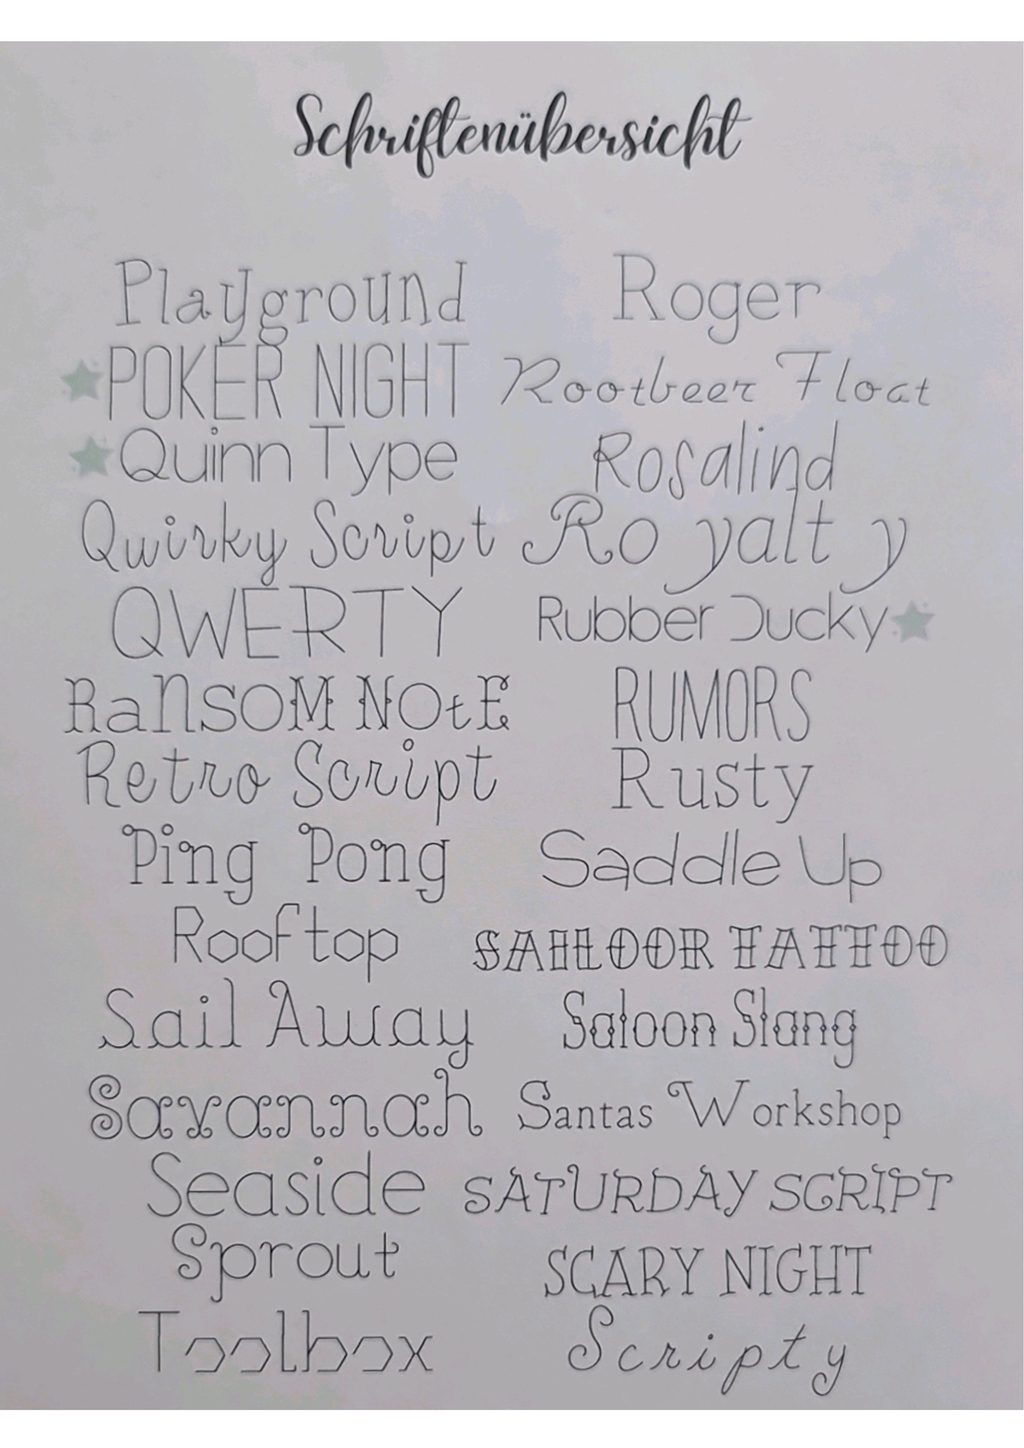 Schriftenübersicht
Playground
POKER NIGHT
Quinn Type
Quirky Script
QWERTY
RaNSOM NOtE
Retro Script
Ping Pong
Rooftop
Sail Away
Savannah
Seaside
Sprout
Toolbox
Roger
Rootbeer Float
Rosalind
Ro yalt y
Rubber Ducky
RUMORS
Rusty
Saddle Up
SAILOOR TATTOO
Saloon Slang
Santas Workshop
SATURDAY SCRIPT
SCARY NIGHT
Scripty